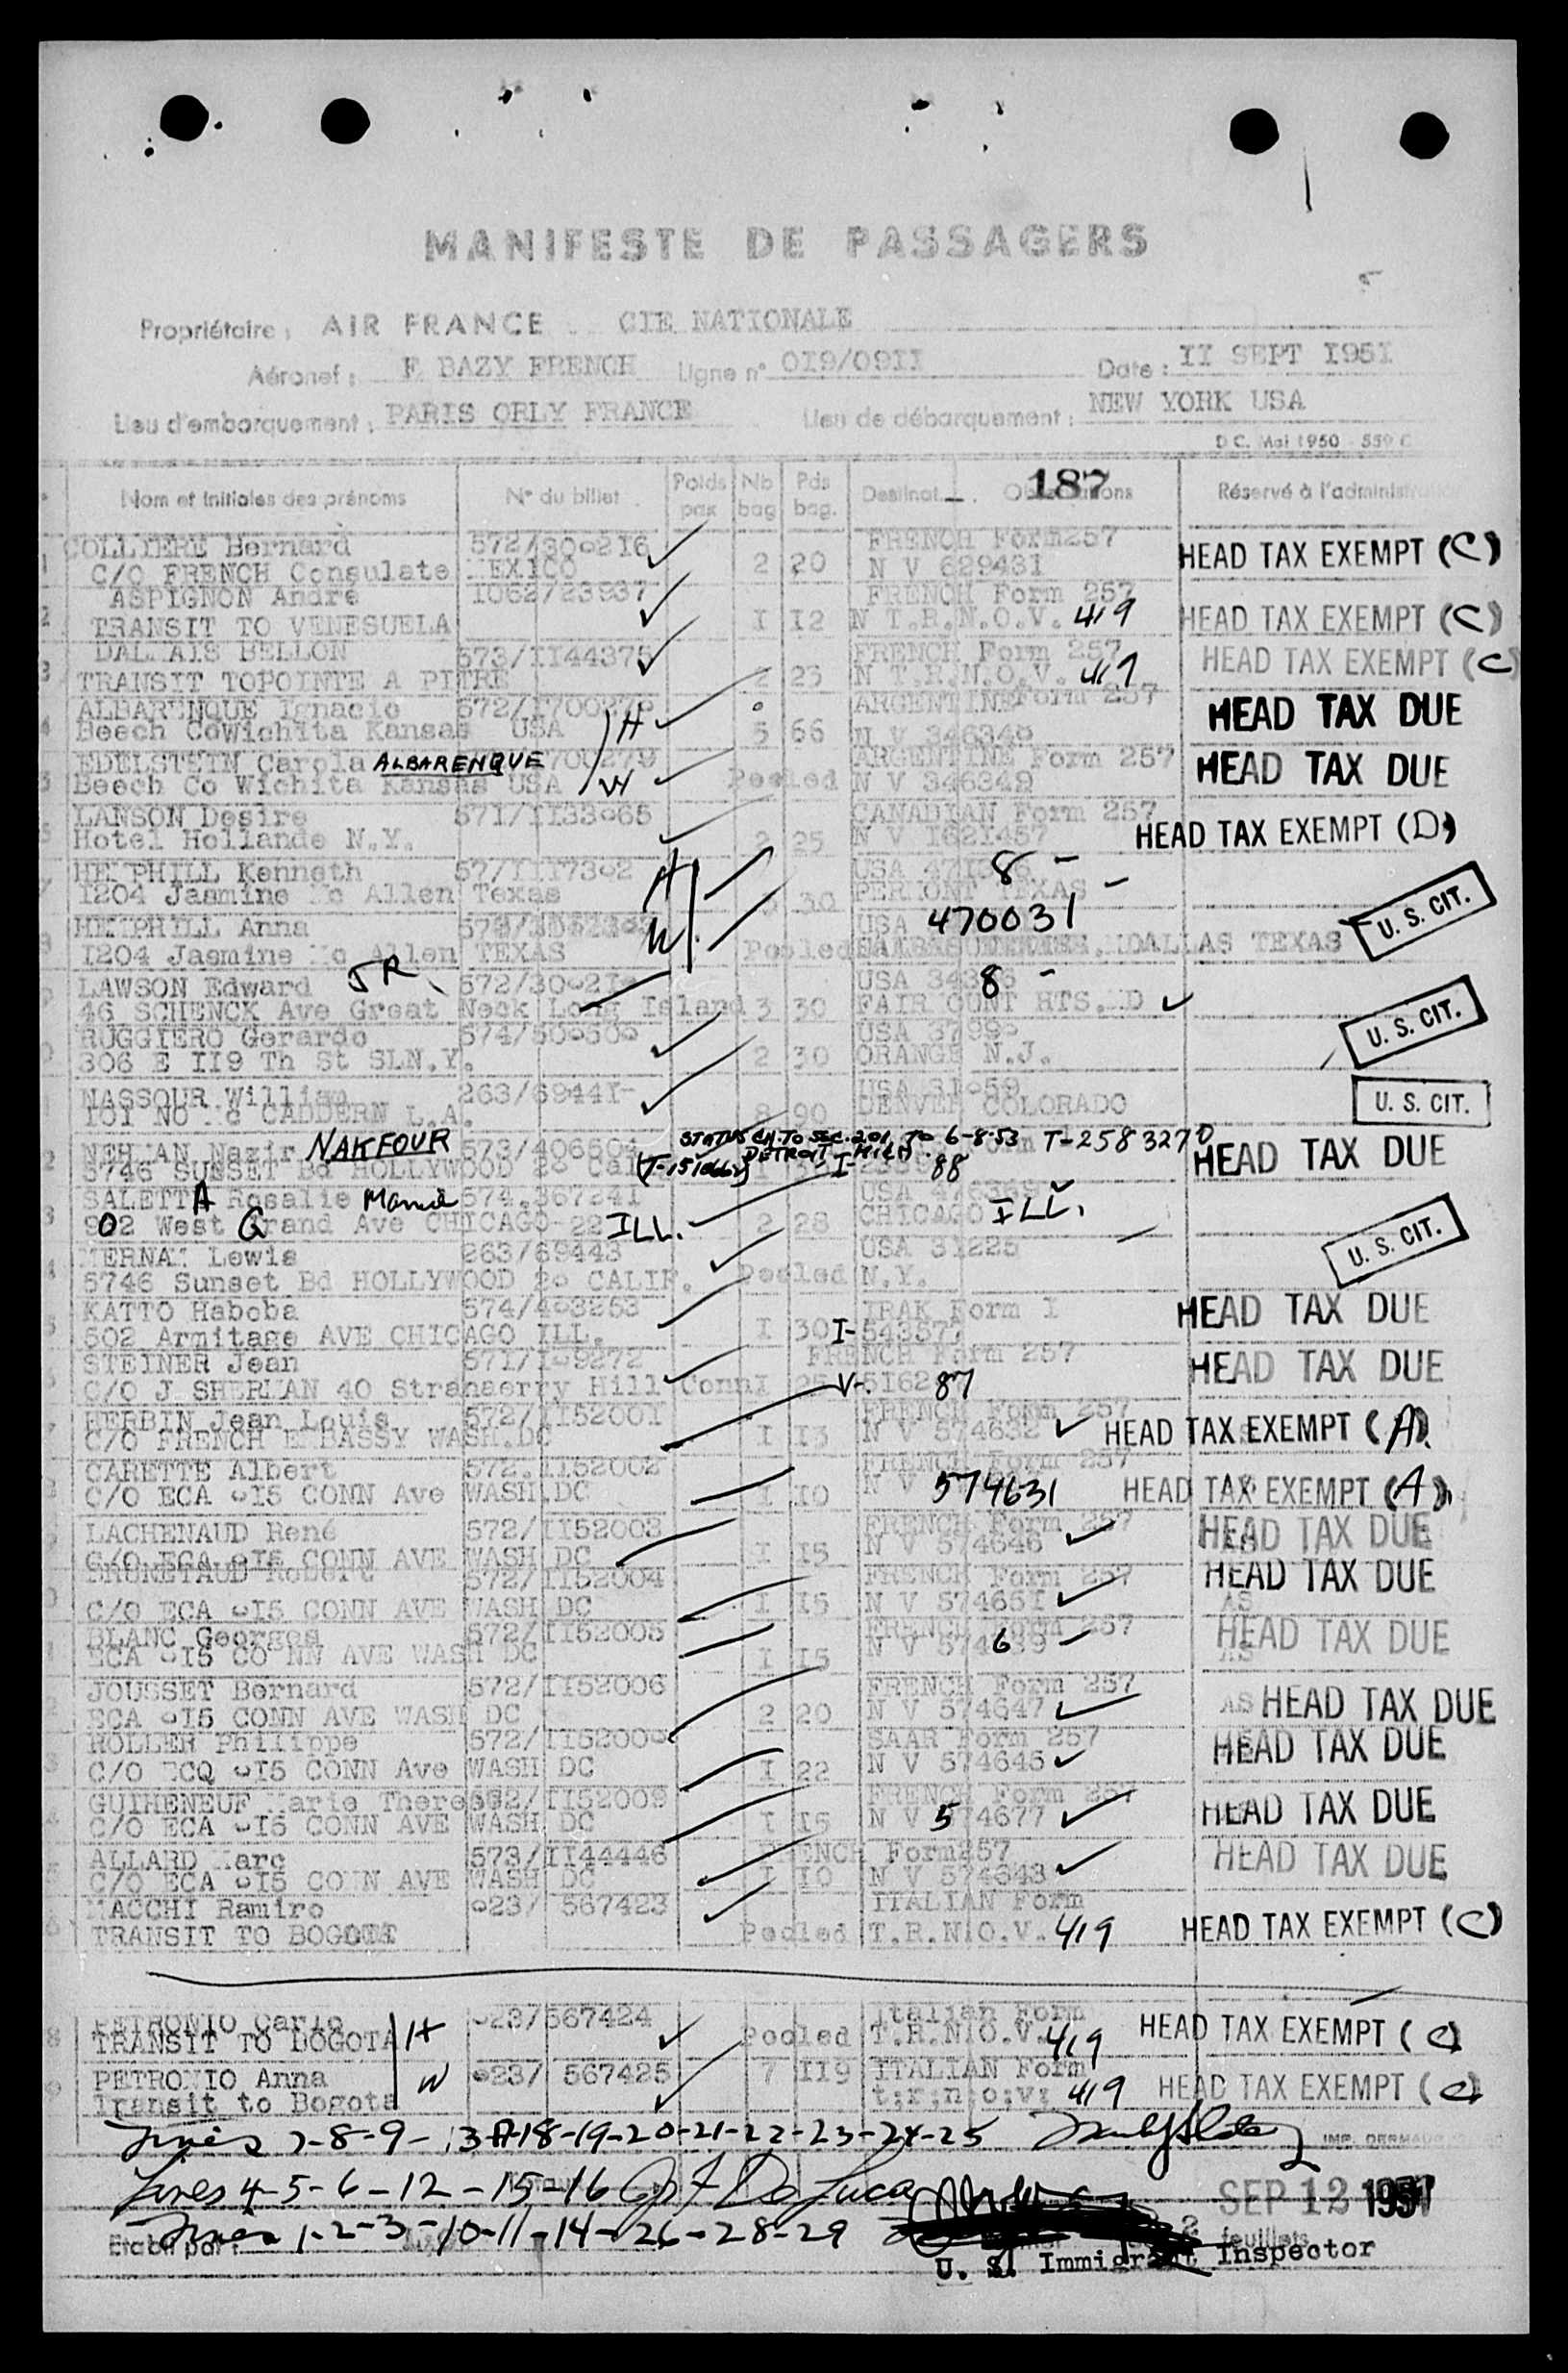 MANIFESTE DE PASSAGERS
Propriétaire : AIR FRANCE CIE NATIONALE
Aéronef : F BAZY FRENCH Ligne n° 019/0911 Date : II SEPT I95I
Lieu d'embarquement : PARIS ORLY FRANCE Lieu de débarquement : NEW YORK USA
D.C. Mai 1950 - 559
187
Nom et Initiales des prénoms N° du billet Poids pax Nb bag Pds bag. Destinat. Réservé à l'administration
COLLIERE Bernard 572/300216 FRENCH Form257 HEAD TAX EXEMPT (C)
C/O FRENCH Consulate MEXICO 2 20 N V 629431
ASPIGNON André I062/23937 FRENCH Form 257
TRANSIT TO VENESUELA I I2 N T.R.N.O.V. 419 HEAD TAX EXEMPT (C)
BELLON 573/II44375 FRENCH Form 257 HEAD TAX EXEMPT (C)
TRANSIT TOPOINTE A PITRE 2 25 N T.R.N.O.V. 419
ALBARENQUE Ignacio ARGENTINE Form 257 HEAD TAX DUE
Beech CoWichita Kansas USA H 5 66 N V
EDELSTEIN Carola ALBARENQUE 700279 ARGENTINE Form 257 HEAD TAX DUE
Beech Co Wichita Kansas USA W Pooled N V 346349
LANSON Desire 571/II33065 CANADIAN Form 257
Hotel Hollande N.Y. 2 25 N V I62I457 HEAD TAX EXEMPT (D)
HEMPHILL Kenneth 57/III7302 H USA 8 -
I204 Jasmine Mc Allen Texas 30 TEXAS -
HEMPHILL Anna W USA 470031 U. S. CIT.
I204 Jasmine Mc Allen TEXAS Pooled DALLAS TEXAS
LAWSON Edward JR. USA 8 -
46 SCHENCK Ave Great Neck Long Island 3 30 FAIRMOUNT HTS. MD
RUGGIERO Gerardo 574/500500 USA U. S. CIT.
306 E II9 Th St SLN.Y. 2 30 ORANGE N.J.
NASSOUR William 263/6944I- USA 31059 U. S. CIT.
L.A. 8 90 DENVER COLORADO
Nazir NAKFOUR 573/406504 STATUS CH. TO SEC. 201 TO 6-8-53 T-2583270 HEAD TAX DUE
5746 SUNSET Bd HOLLYWOOD DETROIT, MICH. I- 88
SALETTA Rosalie Marie 574.367241 USA
902 West Grand Ave CHICAGO-22 ILL. 2 28 CHICAGO ILL.
Lewis 263/69443 USA 31225 U. S. CIT.
5746 Sunset Bd HOLLYWOOD CALIF. Pooled N.Y.
KATTO Haboba 574/403253 IRAK Form I HEAD TAX DUE
502 Armitage AVE CHICAGO ILL. I 30 I-
STEINER Jean 571/I09272 FRENCH Form 257 HEAD TAX DUE
C/O J SHERMAN 40 Hill Conn I 25 V-. 5162 87
HERBIN Jean Louis 572/II5200I FRENCH Form 257
C/O FRENCH EMBASSY WASH.DC I I3 N V 574632 HEAD TAX EXEMPT (A)
CARETTE Albert 572.II52002 FRENCH Form 257
C/O ECA 8I5 CONN Ave WASH.DC I I0 N V 574631 HEAD TAX EXEMPT (A)
LACHENAUD René 572/II52003 FRENCH Form 257 HEAD TAX DUE
C/O ECA 8I5 CONN AVE WASH DC I I5 N V 574646 AS
BRUNETAUD Robert 572/II52004 FRENCH Form 257 HEAD TAX DUE
C/O ECA 8I5 CONN AVE WASH DC I I5 N V 57465I AS
BLANC Georges 572/II52005 FRENCH Form 257 HEAD TAX DUE
ECA 8I5 CONN AVE WASH DC I I5 N V 574639 AS
JOUSSET Bernard 572/II52006 FRENCH Form 257
ECA 8I5 CONN AVE WASH DC 2 20 N V 574647 AS HEAD TAX DUE
HOLLER Philippe SAAR Form 257 HEAD TAX DUE
C/O ECQ 8I5 CONN Ave WASH DC I 22 N V 574645
GUIHENEUF Marie Therese 572/II52009 FRENCH Form 257 HEAD TAX DUE
C/O ECA 8I5 CONN AVE WASH DC I I5 N V 574677
ALLARD Marc 573/II44446 FRENCH Form257 HEAD TAX DUE
C/O ECA 8I5 CONN AVE WASH DC I I0 N V 574643
MACCHI Ramiro 023/ 567423 ITALIAN Form
TRANSIT TO BOGOTA Pooled T.R.N.O.V. 419 HEAD TAX EXEMPT (C)
PETRONIO Carlo H 023/567424 Italian Form HEAD TAX EXEMPT (C)
TRANSIT TO BOGOTA Pooled T.R.N.O.V. 419
PETRONIO Anna W 023/ 567425 7 II9 ITALIAN Form HEAD TAX EXEMPT (C)
Transit to Bogota t;r;n;o;v; 419
Lines 7-8-9-13A-18-19-20-21-22-23-24-25
Lines 4-5-6-12-15-16 De Luca SEP 12 1951
Lines 1-2-3-10-11-14-26-28-29
Etabli par : feuillets
U. S. Immigrant Inspector